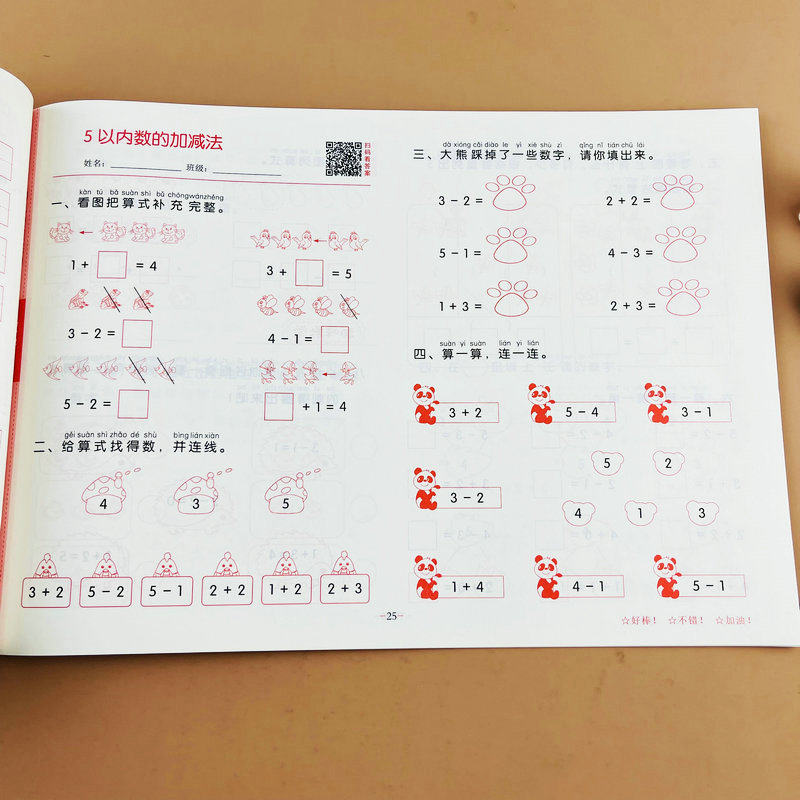 5 以内数的加减法
姓名：__________ 班级：__________
扫码看答案
kàn tú bǎ suàn shì bǔ chōngwánzhěng
一、看图把算式补充完整。
1 + □ = 4
3 + □ = 5
3 − 2 = □
4 − 1 = □
5 − 2 = □
□ + 1 = 4
gěi suàn shì zhǎo dé shù bìng lián xiàn
二、给算式找得数，并连线。
4 3 5
3 + 2 5 − 2 5 − 1 2 + 2 1 + 2 2 + 3
dà xióng cǎi diào le yì xiē shù zì qǐng nǐ tián chū lái
三、大熊踩掉了一些数字，请你填出来。
3 − 2 = 2 + 2 =
5 − 1 = 4 − 3 =
1 + 3 = 2 + 3 =
suàn yi suàn lián yi lián
四、算一算，连一连。
3 + 2 5 − 4 3 − 1
5 2
3 − 2
4 1 3
1 + 4 4 − 1 5 − 1
−25−
☆好棒！ ☆不错！ ☆加油！